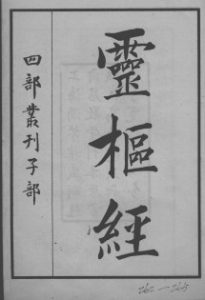 靈樞經
四部叢刊子部
262-265